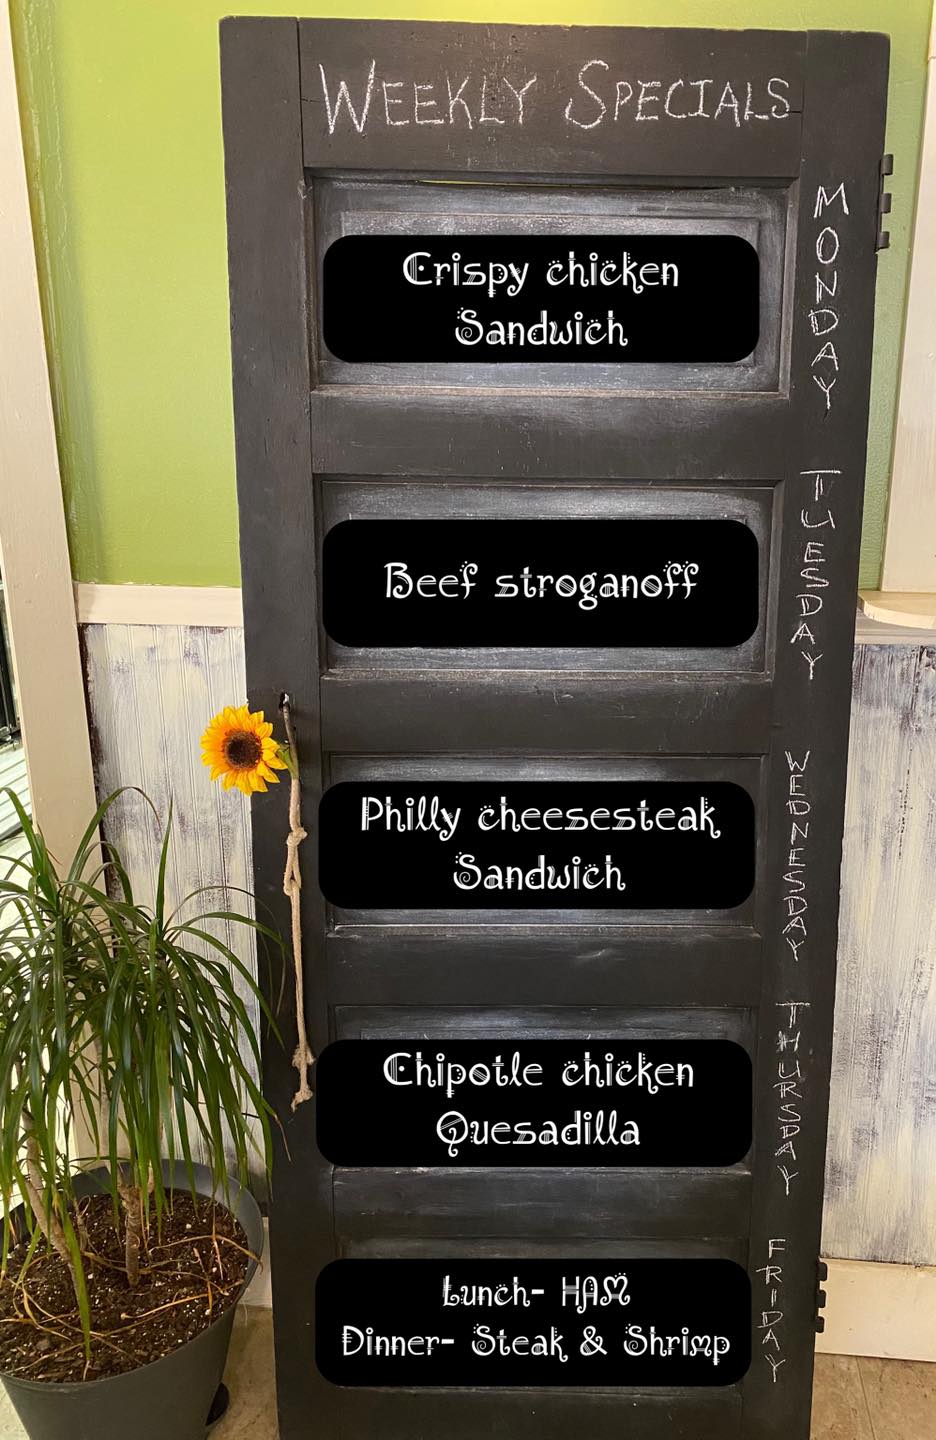 WEEKLY SPECIALS
MONDAY
Crispy chicken
Sandwich
TUESDAY
Beef stroganoff
WEDNESDAY
Philly cheesesteak
Sandwich
THURSDAY
Chipotle chicken
Quesadilla
FRIDAY
Lunch- HAM
Dinner- Steak & Shrimp